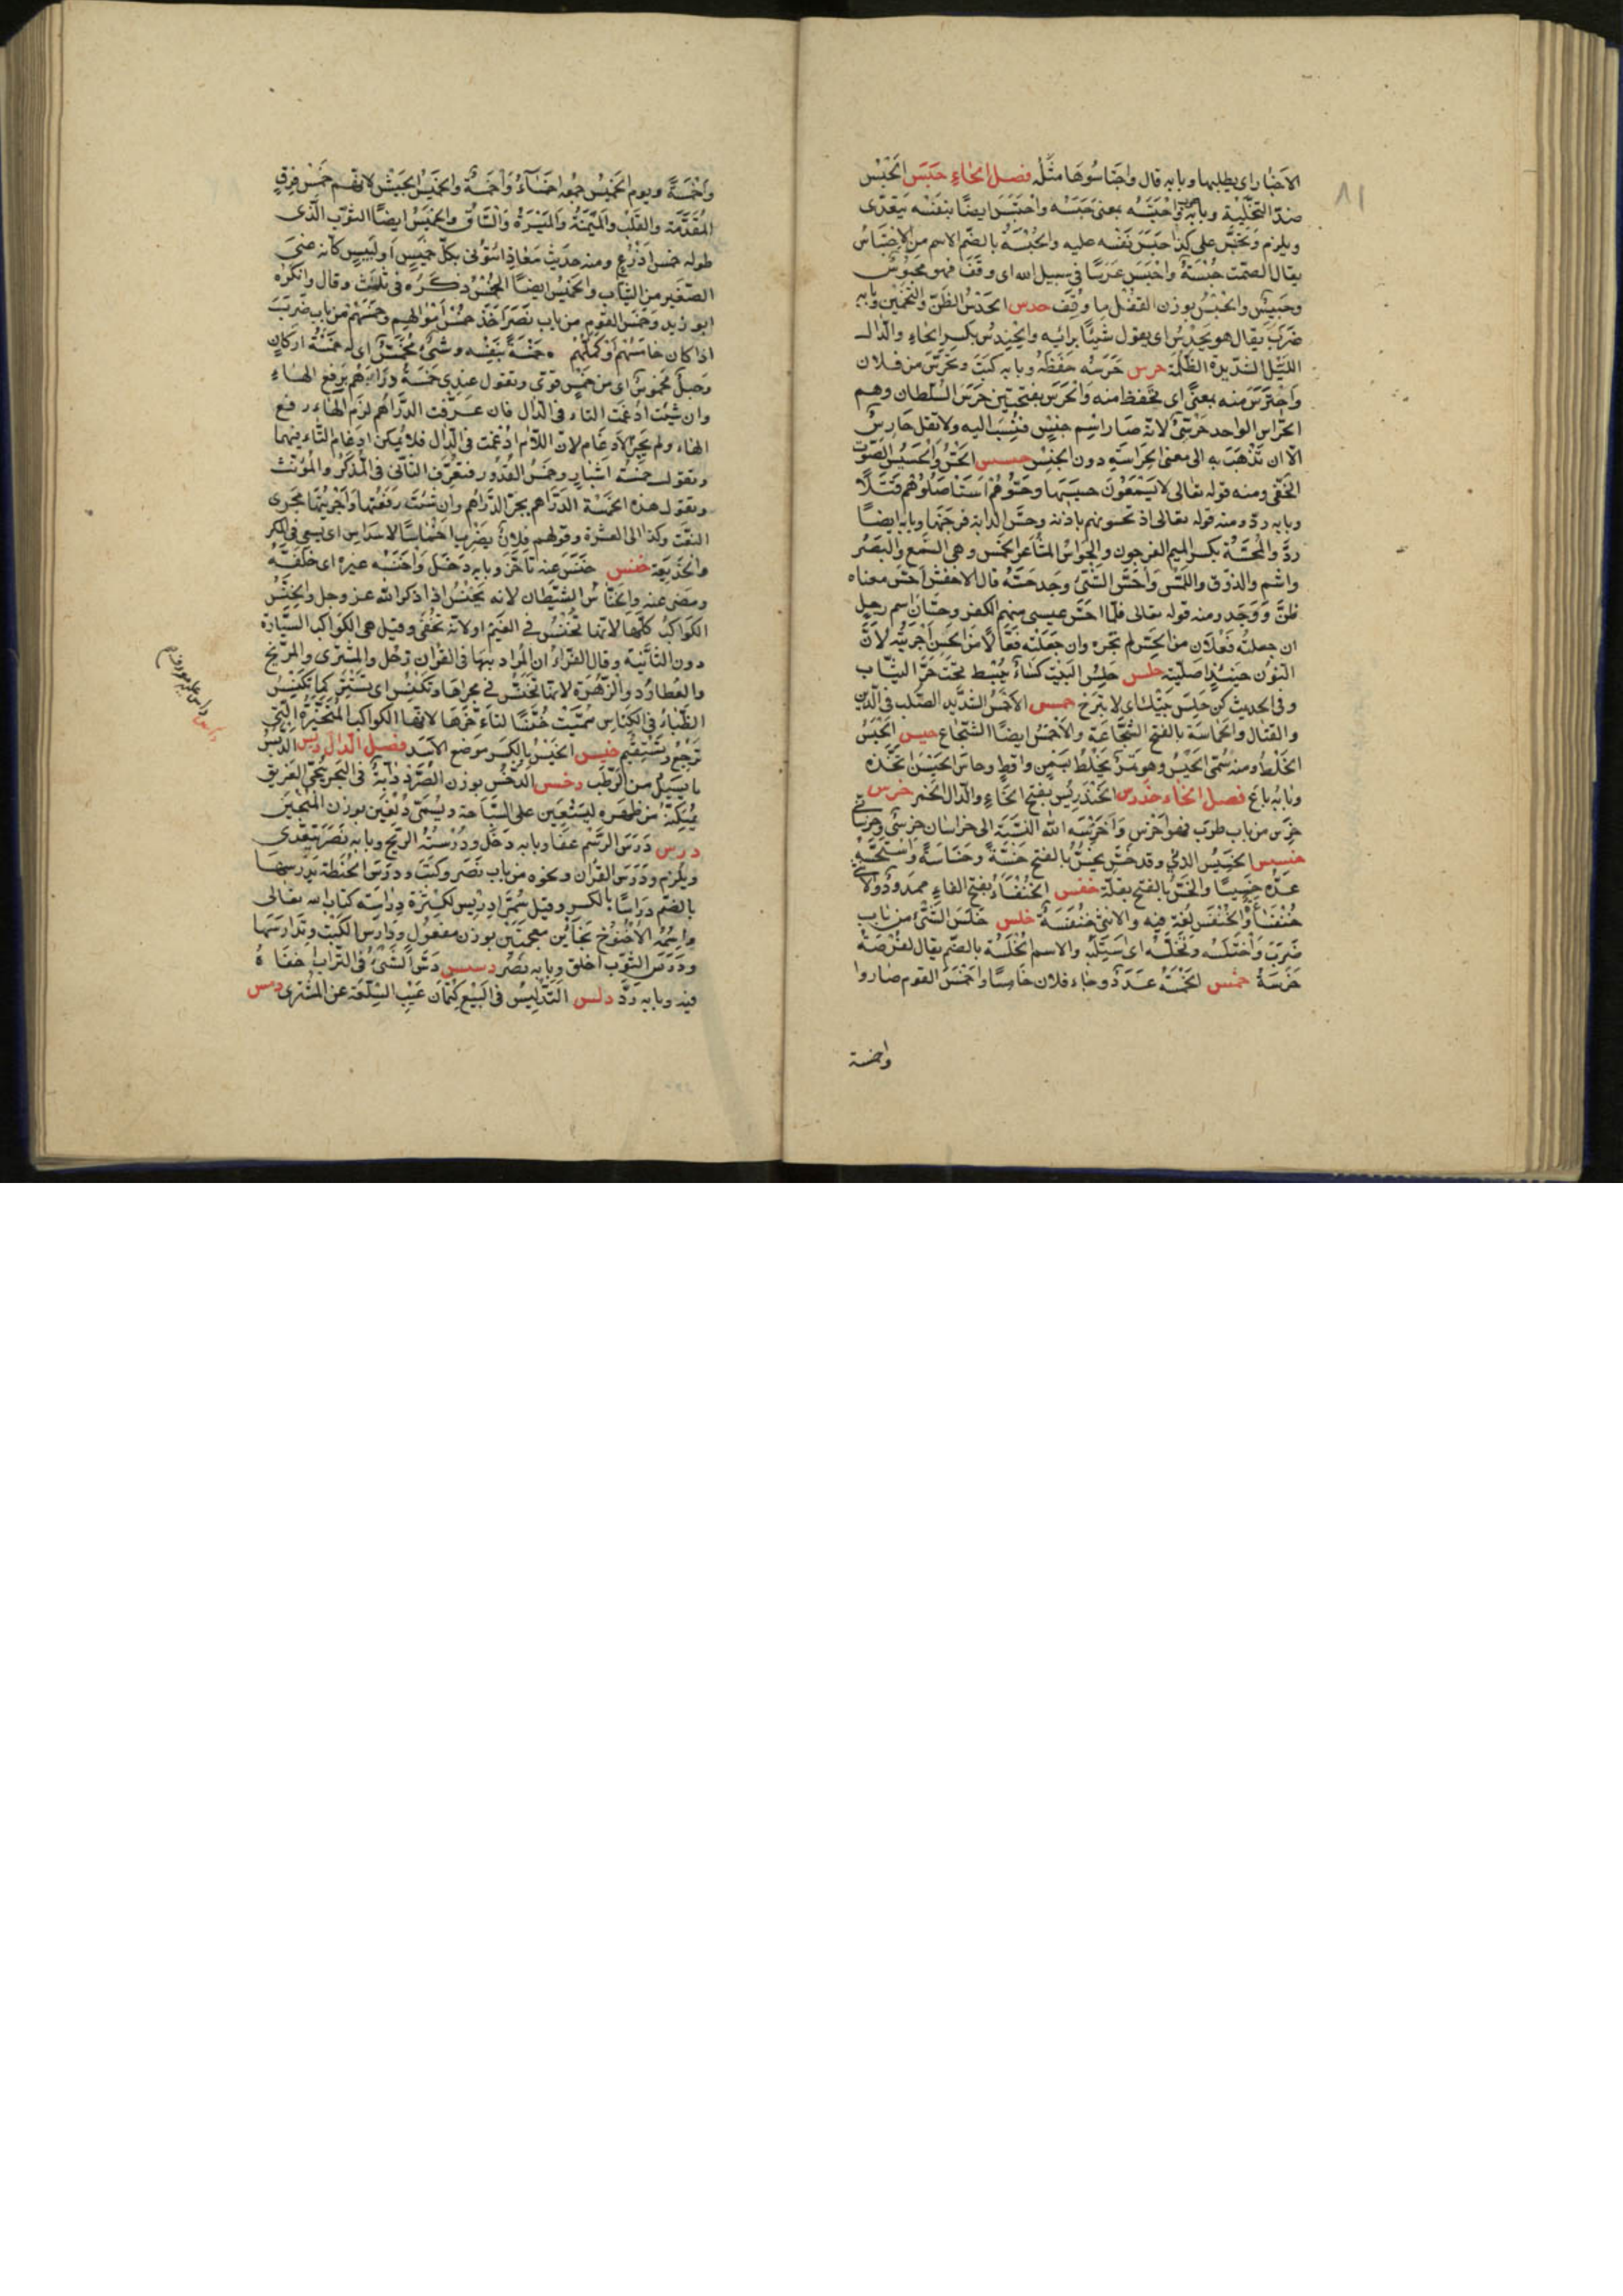 ٨١
الاخبار اى يطلبها وبابه قال واجتاسوها مثله فصل الحاء حبس الحبس
ضد التخلية وبابه ضرب واحتبسه بمعنى حبسه واحتبس ايضا بنفسه يتعدى
ويلزم وتحبس على كذا حبس نفسه عليه والحبسة بالضم الاسم من الاحتباس
يقال الصمت حبسة واحبس فرسا فى سبيل الله اى وقف فهو محبوس
وحبيس والحبس بوزن القفل ما وقف حدس الحدس الظن والتخمين وبابه
ضرب يقال هو يحدس اى يقول شيئا برايه والحندس بكسر الحاء والدال
الليل الشديد الظلمة حرس حرسه حفظه وبابه كتب وتحرس من فلان
واحترس منه بمعنى اى تحفظ منه والحرس بفتحتين حرس السلطان وهم
الحراس الواحد حرسى لانه صار اسم جنس فنسب اليه ولا تقل حارس
الا ان تذهب به الى معنى الحراسة دون الجنس حسس الحس والحسيس الصوت
الخفى ومنه قوله تعالى لا يسمعون حسيسها وحسوهم استاصلوهم قتلا
وبابه رد ومنه قوله تعالى اذ تحسونهم باذنه وحس الدابة فرجنها وبابه ايضا
رد والمحسة بكسر الميم الفرجون والحواس المشاعر الخمس وهى السمع والبصر
والشم والذوق واللمس واحس الشئ وجد حسه قال الاخفش احس معناه
ظن ووجد ومنه قوله تعالى فلما احس عيسى منهم الكفر وحسان اسم رجل
ان جعلته فعلان من الحس لم تجره وان جعلته فعالا من الحسن اجريته لان
النون حينئذ اصلية حلس حلس البيت كساء يبسط تحت حر الثياب
وفى الحديث كن حلس بيتك اى لا تبرح حمس الاحمس الشديد الصلب فى الدين
والقتال والحماسة بالفتح الشجاعة والاحمس ايضا الشجاع حيس الحيس
الخلط ومنه سمى الحيس وهو تمر يخلط بسمن واقط وحاس الحيس اتخذه
وبابه باع فصل الخاء خدرس الخندريس بفتح الخاء والدال الخمر خرس
خرس من باب طرب فهو اخرس واخرسه الله النسبة الى خراسان خرسى وخراسانى
خسس الخسيس الدنى وقد خس يخس بالفتح خسة وخساسة واستخسه
عده خسيسا والخس بالفتح بقلة خفس الخنفساء بفتح الفاء ممدود ولا
خنفساة والخنفس لغة فيه والانثى خنفسة خلس خلس الشئ من باب
ضرب واختلسه وتخلسه اى استلبه والاسم الخلسة بالضم يقال الفرصة
خلسة خمس الخمسة عدد وجاء فلان خامسا واخمس القوم صاروا
واخمسة
واخمسة ويوم الخميس جمعه اخمساء واخمسة والخميس الجيش لانهم خمس فرق
المقدمة والقلب والميمنة والميسرة والساق والخميس ايضا الثوب الذى
طوله خمس اذرع ومنه حديث معاذ ائتونى بكل خميس او لبيس كانه عنى
الصغير من الثياب والخميس ايضا الخمس ذكره فى ثلث وقال وانكره
ابو زيد وخمس القوم من باب نصر اخذ خمس اموالهم وخمسهم من باب ضرب
اذا كان خامسهم او كملهم خمسة بنفسه وشئ مخمس اى له خمسة اركان
وحبل مخموس اى من خمس قوى وتقول عندى خمسة دراهم برفع الهاء
وان شئت ادغمت التاء فى الدال فان عرفت الدراهم لزم الهاء رفع
الهاء ولم يجز الادغام لان اللام ادغمت فى الدال فلا يمكن ادغام التاء فيهما
وتقول خمسة اشبار وخمس القدور فتعرف الثانى فى المذكر والمؤنث
وتقول هذه الخمسة الدراهم بجر الدراهم وان شئت رفعتها واجريتها مجرى
النعت وكذا الى العشرة وقولهم فلان يضرب اخماسا لاسداس اى يسعى فى المكر
والخديعة خنس خنس عنه تاخر وبابه دخل واخنسه غيره اى خلفه
ومضى عنه والخناس الشيطان لانه يخنس اذا ذكر الله عز وجل والخنس
الكواكب كلها لانها تخنس فى المغيب او لانه تخفى وقيل هى الكواكب السيارة
دون الثابتة وقال الفراء ان المراد بها فى القران زحل والمشترى والمريخ
والعطارد والزهرة لانها تخنس فى مجراها وتكنس اى تستتر كما تكنس
الظباء فى الكناس سميت خنسا لتاخرها لانها الكواكب المتحيرة التى
ترجع وتستقيم خيس الخيس بالكسر موضع الاسد فصل الدال دبس الدبس
ما يسيل من الرطب دخس الدخس بوزن الصرد دابة فى البحر تنجى الغريق
تمكنه من ظهره ليستعين على السباحة ويسمى دلفين بوزن المنجنين
درس درس الرسم عفا وبابه دخل ودرسته الريح وبابه نصر يتعدى
ويلزم ودرس القران ونحوه من باب نصر وكتب ودرس الحنطة يدرسها
بالضم دراسا بالكسر وقيل سمى ادريس لكثرة دراسة كتاب الله تعالى
واسمه الاخنوخ بخائين معجمتين بوزن مفعول ودارس الكتب وتدارسها
ودرس الثوب اخلق وبابه نصر دسس دس الشئ فى التراب اخفاه
فيه وبابه رد دلس التدليس فى البيع كتمان عيب السلعة عن المشترى دمس